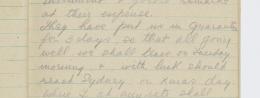 at their expense.
They have put us in Quarantine
for 3 days so that all going
well we shall leave on Tuesday
morning & with luck should
reach Sydney on Xmas day